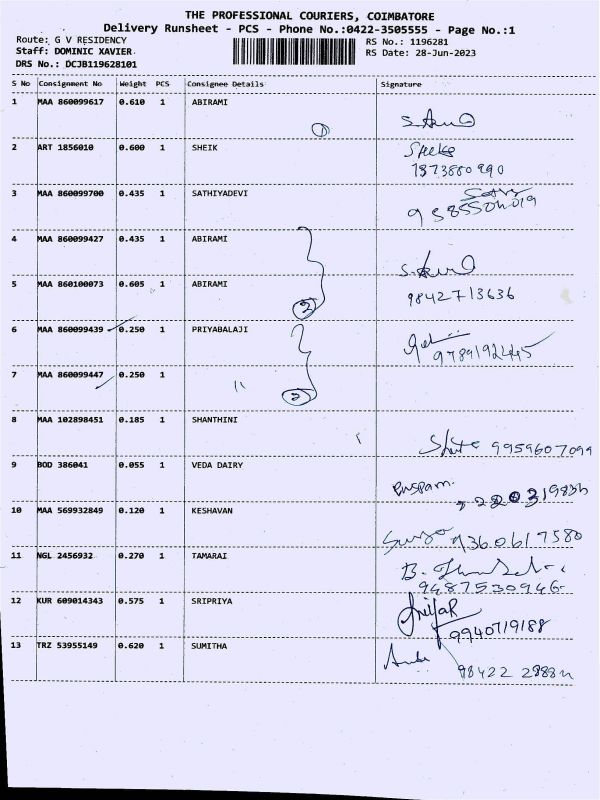 THE PROFESSIONAL COURIERS, COIMBATORE
Delivery Runsheet - PCS - Phone No.:0422-3505555 - Page No.:1
Route: G V RESIDENCY RS No.: 1196281
Staff: DOMINIC XAVIER RS Date: 28-Jun-2023
DRS No.: DCJB119628101
S No Consignment No Weight PCS Consignee Details Signature
1 MAA 860099617 0.610 1 ABIRAMI
1
2 ART 1856010 0.600 1 SHEIK
3 MAA 860099700 0.435 1 SATHIYADEVI
4 MAA 860099427 0.435 1 ABIRAMI
5 MAA 860100073 0.605 1 ABIRAMI 9842713636
2
6 MAA 860099439 0.250 1 PRIYABALAJI
7 MAA 860099447 0.250 1 "
2
8 MAA 102898451 0.185 1 SHANTHINI 9959607099
9 BOD 386041 0.055 1 VEDA DAIRY
10 MAA 569932849 0.120 1 KESHAVAN 9360617580
11 NGL 2456932 0.270 1 TAMARAI
9487530946
12 KUR 609014343 0.575 1 SRIPRIYA
9940719188
13 TRZ 53955149 0.620 1 SUMITHA